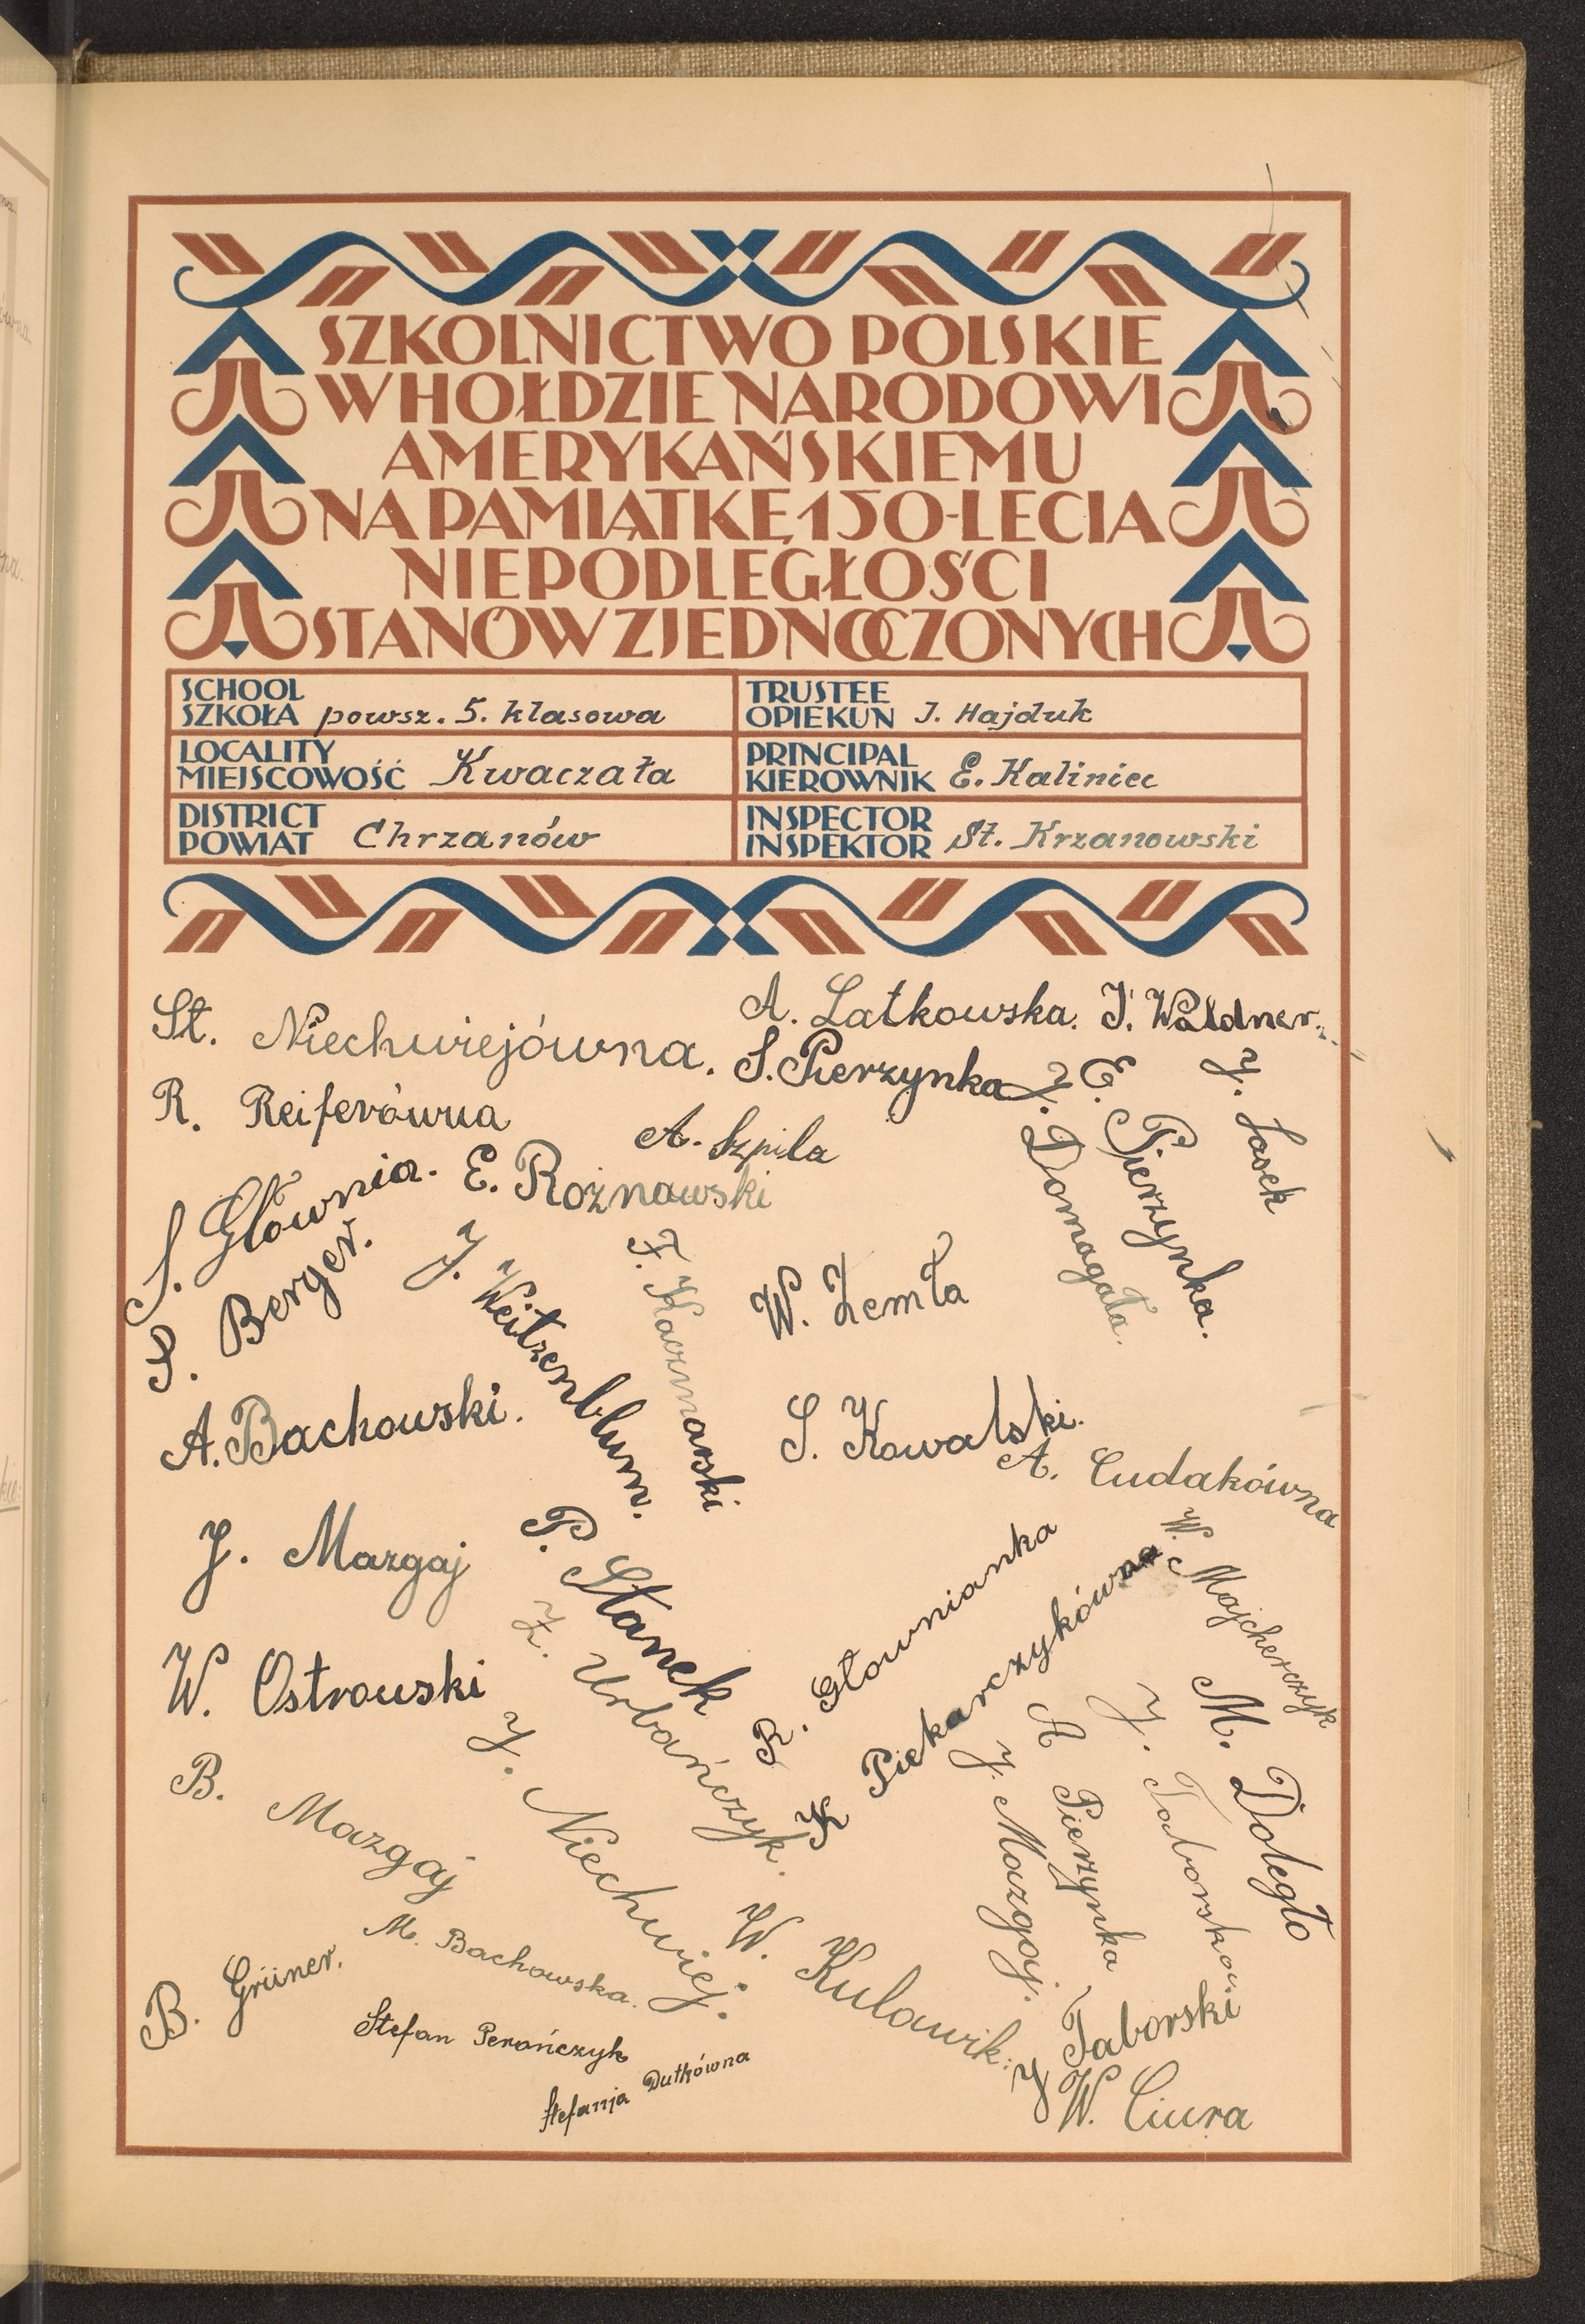 SZKOLNICTWO POLSKIE
W HOŁDZIE NARODOWI
AMERYKAŃSKIEMU
NA PAMIĄTKĘ 150-LECIA
NIEPODLEGŁOŚCI
STANÓW ZJEDNOCZONYCH
SCHOOL
SZKOŁA powsz. 5. klasowa
TRUSTEE
OPIEKUN J. Hajduk
LOCALITY
MIEJSCOWOŚĆ Kwaczała
PRINCIPAL
KIEROWNIK E. Kaliniec
DISTRICT
POWIAT Chrzanów
INSPECTOR
INSPEKTOR St. Krzanowski
St. Niechwiejówna.
A. Latkowska.
J. Waldner.
S. Pierzynka
R. Reiferówna
A. Szpila
J. Domagała.
E. Pierzynka.
J. Łasek
S. Głównia.
E. Rożnawski
S. Berger.
J. Weitzenblum.
F. Kaczmarski
W. Żemła
A. Bachowski.
S. Kowalski.
A. Cudakówna
J. Mazgaj
P. Stanek
Z. Urbańczyk.
R. Głownianka
K. Piekarczykówna
W. Majcherczyk
W. Ostrowski
J. Niechwiej.
B. Mazgaj
J. Mazgaj.
A Pierzynka
J. Taborska.
M. Dołęgło
M. Bachowska.
W. Kulawik.
B. Grüner.
Stefan Perończyk
Stefanja Dutkówna
J Taborski
W. Ciura